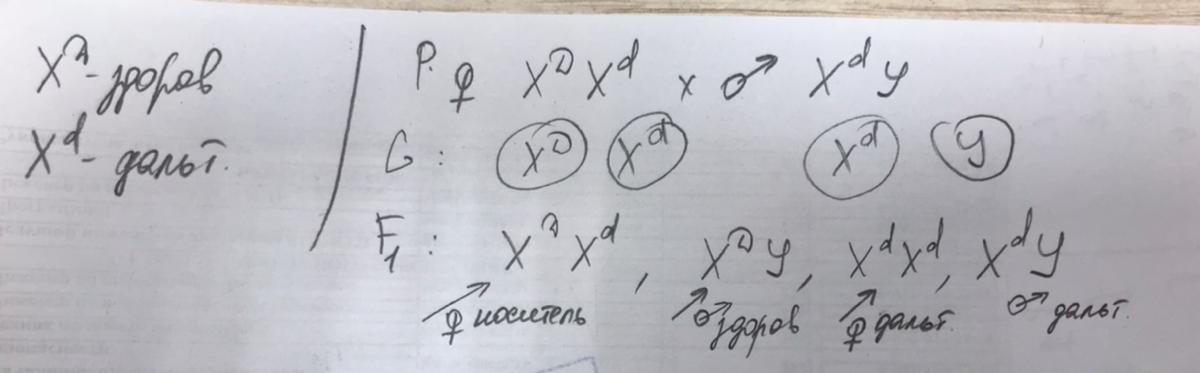 X^D - здоров
X^d - дальт.
P. ♀ X^D X^d x ♂ X^d y
G : X^D X^d X^d y
F₁ : X^D X^d , X^D y , X^d X^d , X^d y
♀ носитель ♂ здоров ♀ дальт. ♂ дальт.